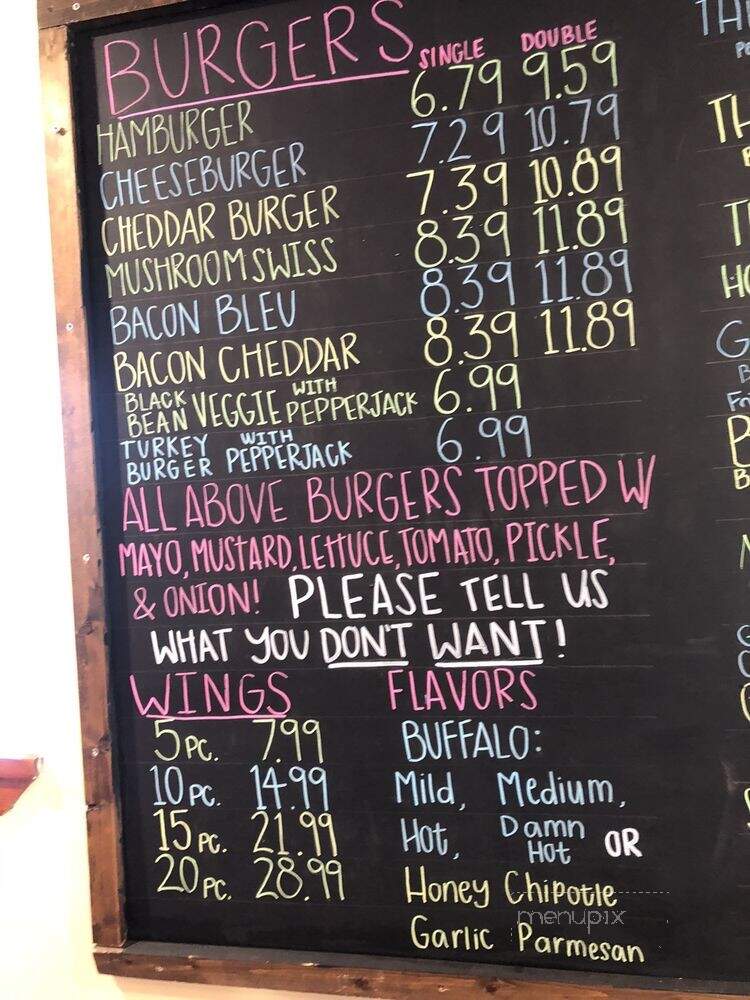 BURGERS SINGLE DOUBLE
HAMBURGER 6.79 9.59
CHEESEBURGER 7.29 10.79
CHEDDAR BURGER 7.39 10.89
MUSHROOM SWISS 8.39 11.89
BACON BLEU 8.39 11.89
BACON CHEDDAR 8.39 11.89
BLACK BEAN VEGGIE WITH PEPPERJACK 6.99
TURKEY BURGER WITH PEPPERJACK 6.99
ALL ABOVE BURGERS TOPPED W/
MAYO, MUSTARD, LETTUCE, TOMATO, PICKLE,
& ONION! PLEASE TELL US
WHAT YOU DON'T WANT!
WINGS FLAVORS
5 PC. 7.99 BUFFALO:
10 PC. 14.99 Mild, Medium,
15 PC. 21.99 Hot, Damn Hot OR
20 PC. 28.99 Honey Chipotle
Garlic Parmesan
menupix